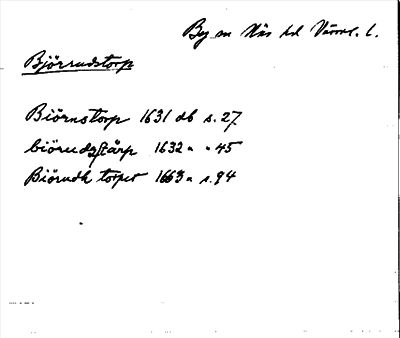 By sn Näs hd Värml. l.
Björrudstorp
Biörnstorp 1631 db s. 27
biörudztårp 1632 " " 45
Biörudh torpet 1663 " s. 94